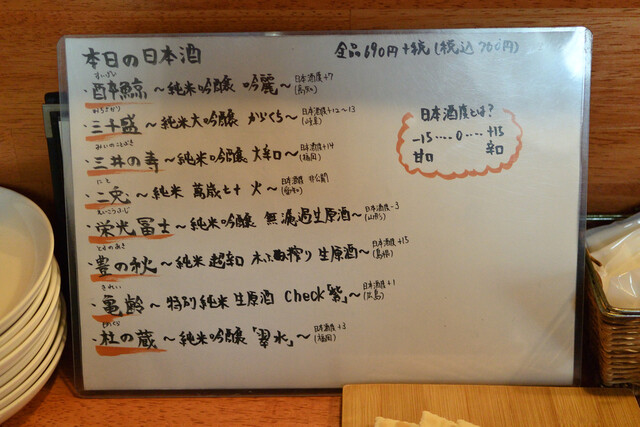 本日の日本酒
全品690円+税(税込760円)
すいげい
酔鯨 〜純米吟醸 吟麗〜 日本酒度+7 (高知)
みちさかり
三千盛 〜純米大吟醸 からくち〜 日本酒度+12〜13 (岐阜)
みいのことぶき
三井の寿 〜純米吟醸 大辛口〜 日本酒度+14 (福岡)
にと
二兎 〜純米 萬歳七十 火〜 日本酒度 非公開 (愛知)
えいこうふじ
栄光冨士 〜純米吟醸 無濾過生原酒〜 日本酒度-3 (山形)
とよのあき
豊の秋 〜純米 超辛口 木ふね搾り 生原酒〜 日本酒度+15 (島根)
きれい
亀齢 〜特別純米 生原酒 Check「紫」〜 日本酒度+1 (広島)
もりのくら
杜の蔵 〜純米吟醸「翠水」〜 日本酒度+3 (福岡)
日本酒度とは?
-15‥‥0‥‥+15
甘口 辛口